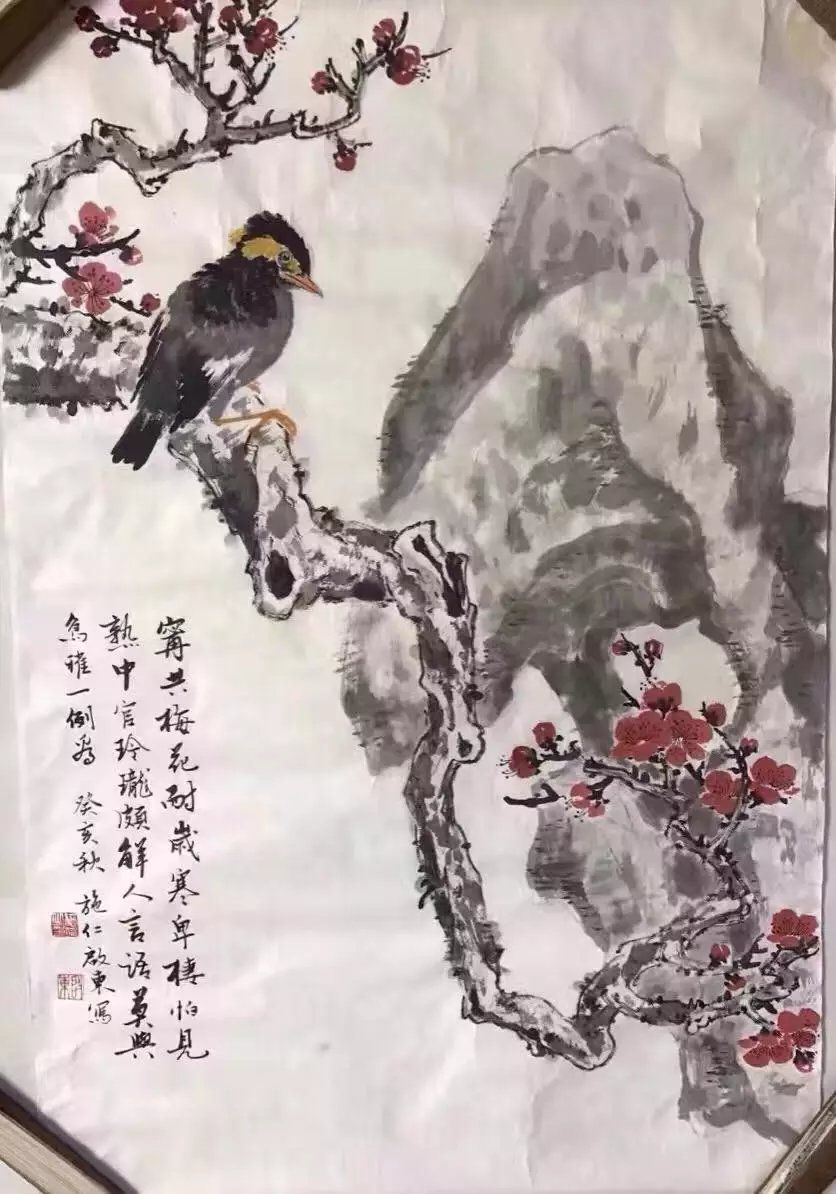 寧共梅花耐歲寒卑棲怕見
熱中官玲瓏頗解人言語莫與
烏雅一例看 癸亥秋 施仁啟東寫